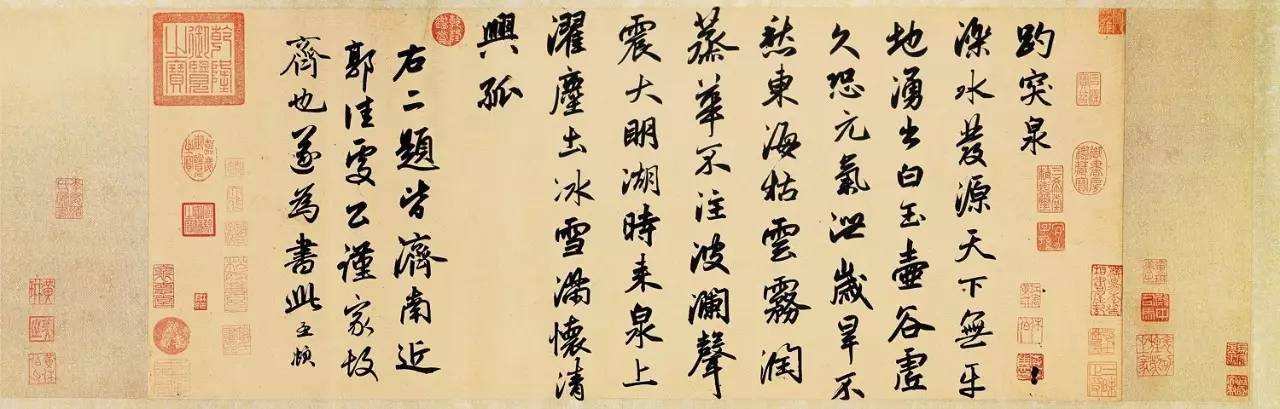 趵突泉
濼水發源天下無平
地湧出白玉壺谷虛
久恐元氣洩歲旱不
愁東海枯雲霧潤
蒸華不注波瀾聲
震大明湖時來泉上
濯塵土冰雪滿懷清
興孤
右二題皆濟南近
郭佳處公謹家故
齊也遂為書此孟頫
乾隆御覽之寶